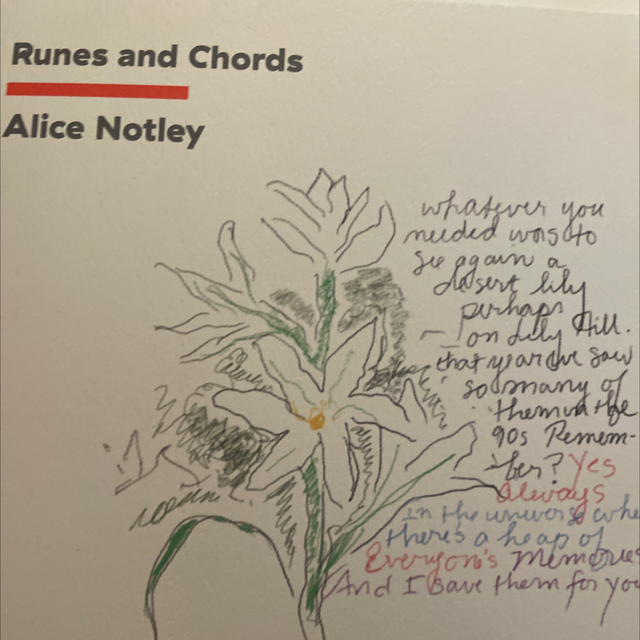 Runes and Chords
Alice Notley
whatever you
needed was to
see again a
desert lily
perhaps
— on Lily Hill.
that year we saw
so many of
them in the
90s Remem-
ber? Yes
always
in the universe whe
there's a heap of
Everyone's memories
And I save them for you